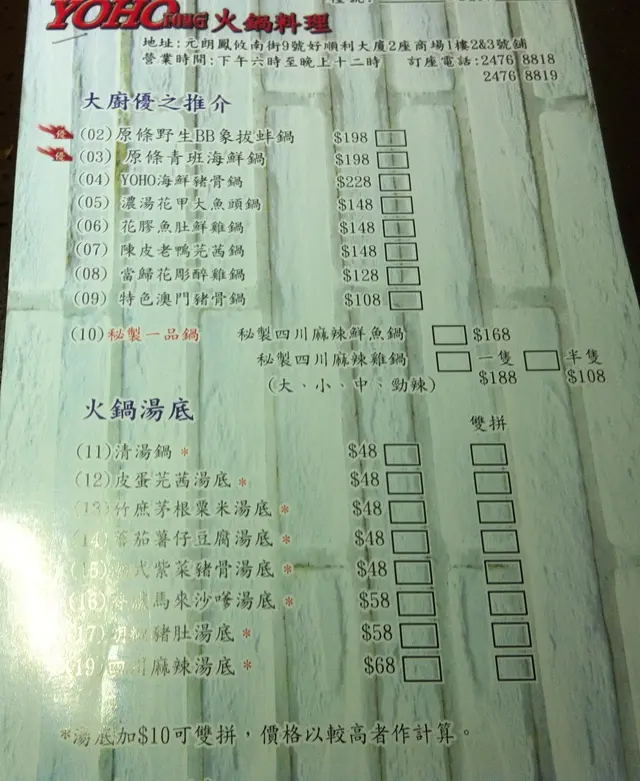 YOHO 火鍋料理
地址:元朗鳳攸南街9號好順利大廈2座商場1樓2&3號舖
營業時間:下午六時至晚上十二時 訂座電話:2476 8818
2476 8819
大廚優之推介
(02)原條野生BB象拔蚌鍋 $198
(03) 原條青班海鮮鍋 $198
(04) YOHO海鮮豬骨鍋 $228
(05) 濃湯花甲大魚頭鍋 $148
(06) 花膠魚肚鮮雞鍋 $148
(07) 陳皮老鴨芫茜鍋 $148
(08) 當歸花彫醉雞鍋 $128
(09) 特色澳門豬骨鍋 $108
(10)秘製一品鍋 秘製四川麻辣鮮魚鍋 $168
秘製四川麻辣雞鍋 一隻 半隻
(大、小、中、勁辣) $188 $108
火鍋湯底 雙拼
(11)清湯鍋* $48
(12)皮蛋芫茜湯底* $48
(13)竹庶茅根粟米湯底* $48
(14)蕃茄薯仔豆腐湯底* $48
(15) 式紫菜豬骨湯底* $48
(16) 馬來沙嗲湯底* $58
(17)胡椒豬肚湯底* $58
(19)四川麻辣湯底* $68
*湯底加$10可雙拼,價格以較高者作計算。